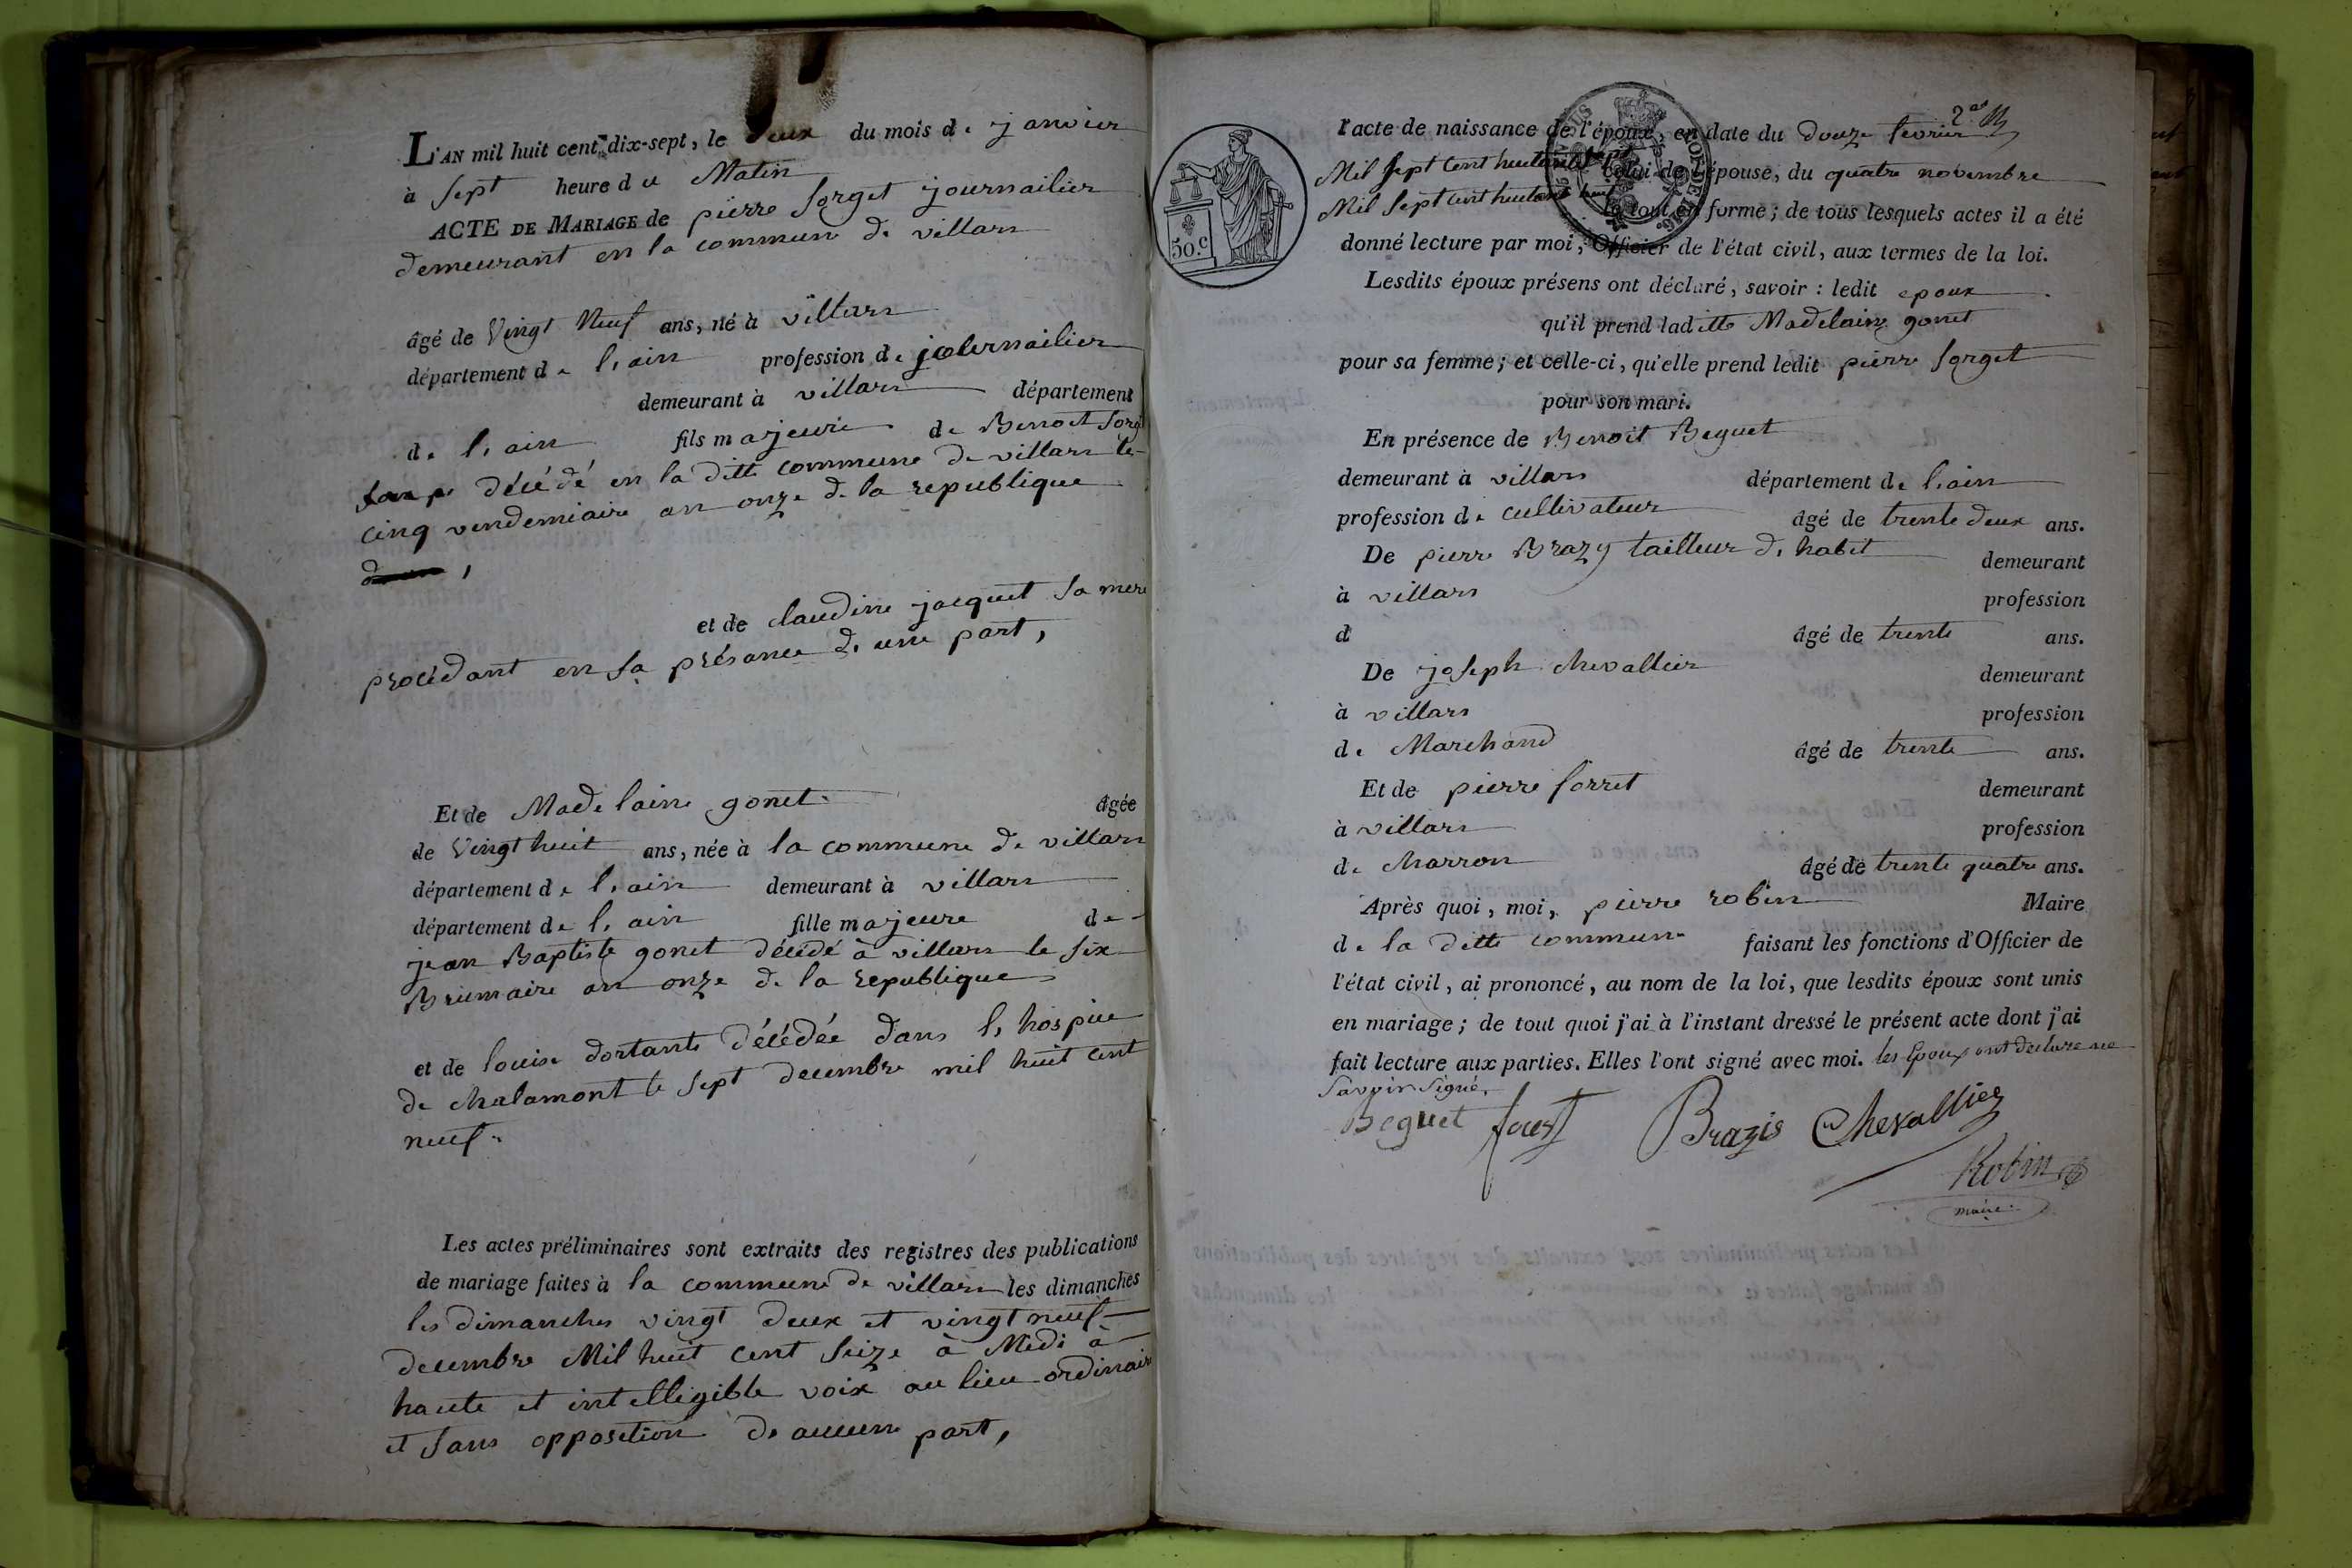 L'AN mil huit cent dix-sept, le deux du mois de janvier
à sept heure du Matin
ACTE DE MARIAGE de pierre sorget journailier
demeurant en la commune de villars
âgé de Vingt Neuf ans, né à villars
département de l'ain profession de journailier
demeurant à villars département
de l'ain fils majeure de Benoit sorget
décédé en la ditte commune de villars le
cinq vendemiaire an onze de la republique
et de claudine jacquet sa mere
procédant en sa présance d'une part,
Et de Madelaine gonet âgée
de Vingt huit ans, née à la commune de villars
département de l'ain demeurant à villars
département de l'ain fille majeure de
jean Baptiste gonet décédé à villars le six
Brumaire an onze de la republique
et de louise dortante décédée dans l'hospice
de chalamont le sept decembre mil huit cent
neuf.
Les actes préliminaires sont extraits des registres des publications
de mariage faites à la commune de villars les dimanches
les dimanches vingt deux et vingt neuf
decembre Mil huit cent seize à Midi à
haute et intelligible voix au lieu ordinaire
et sans opposition de aucune part,
50.c
l'acte de naissance de l'époux, en date du douze fevrier
Mil sept cent huitante sept celui de l'épouse, du quatre novembre
Mil sept cent huitante huit le tout en forme; de tous lesquels actes il a été
donné lecture par moi, Officier de l'état civil, aux termes de la loi.
Lesdits époux présens ont déclaré, savoir: ledit epoux
qu'il prend laditte Madelaine gonet
pour sa femme; et celle-ci, qu'elle prend ledit pierre sorget
pour son mari.
En présence de Benoit Beguet
demeurant à villars département de l'ain
profession de cultivateur âgé de trente deux ans.
De pierre Brazy tailleur d'habit demeurant
à villars profession
d âgé de trente ans.
De joseph chevallier demeurant
à villars profession
de Marchand âgé de trente ans.
Et de pierre forret demeurant
à villars profession
de charron âgé de trente quatre ans.
Après quoi, moi, pierre robin Maire
de la ditte commune faisant les fonctions d'Officier de
l'état civil, ai prononcé, au nom de la loi, que lesdits époux sont unis
en mariage; de tout quoi j'ai à l'instant dressé le présent acte dont j'ai
fait lecture aux parties. Elles l'ont signé avec moi. les Epoux ont declaré ne
savoir signé.
Beguet Brazis Chevallier
Robin
maire